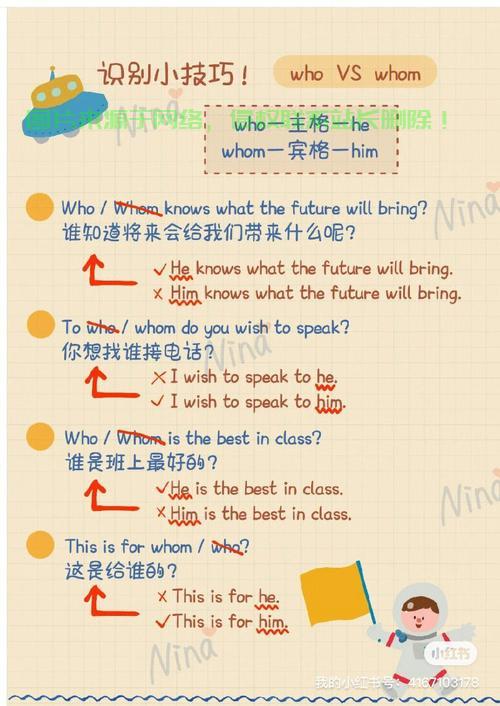 识别小技巧！
who VS whom
图片来源于网络，侵权联系站长删除！
who—主格—he
whom—宾格—him
Nina
Nina
Who / Whom knows what the future will bring?
谁知道将来会给我们带来什么呢？
✓He knows what the future will bring.
×Him knows what the future will bring.
To who / whom do you wish to speak?
你想找谁接电话？
Nina
×I wish to speak to he.
✓I wish to speak to him.
Who / Whom is the best in class?
谁是班上最好的？
✓He is the best in class.
×Him is the best in class.
Nina
This is for whom / who?
这是给谁的？
×This is for he.
✓This is for him.
Nina
小红书
我的小红书号：4167103178